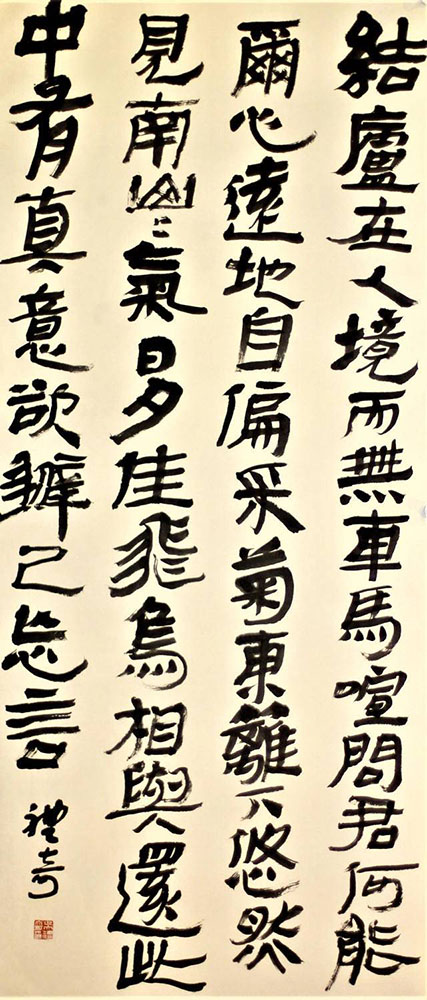 結廬在人境而無車馬喧問君何能
爾心遠地自偏采菊東籬下悠然
見南山〻氣日夕佳飛鳥相與還此
中有真意欲辯已忘言
禮奇